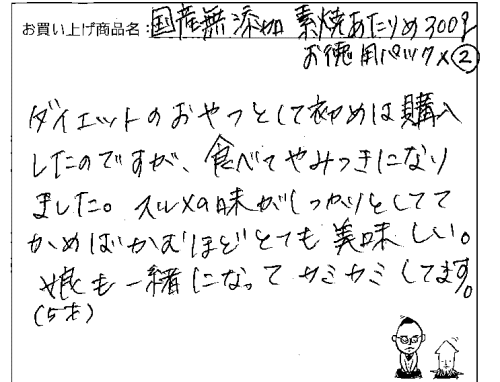 お買い上げ商品名：国産無添加 素焼あたりめ300g
お徳用パック×②
ダイエットのおやつとして初めは購入
したのですが、食べてやみつきになり
ました。スルメの味がしっかりとしてて
かめばかむほどとても美味しい。
娘も一緒になってカミカミしてます。
(5才)